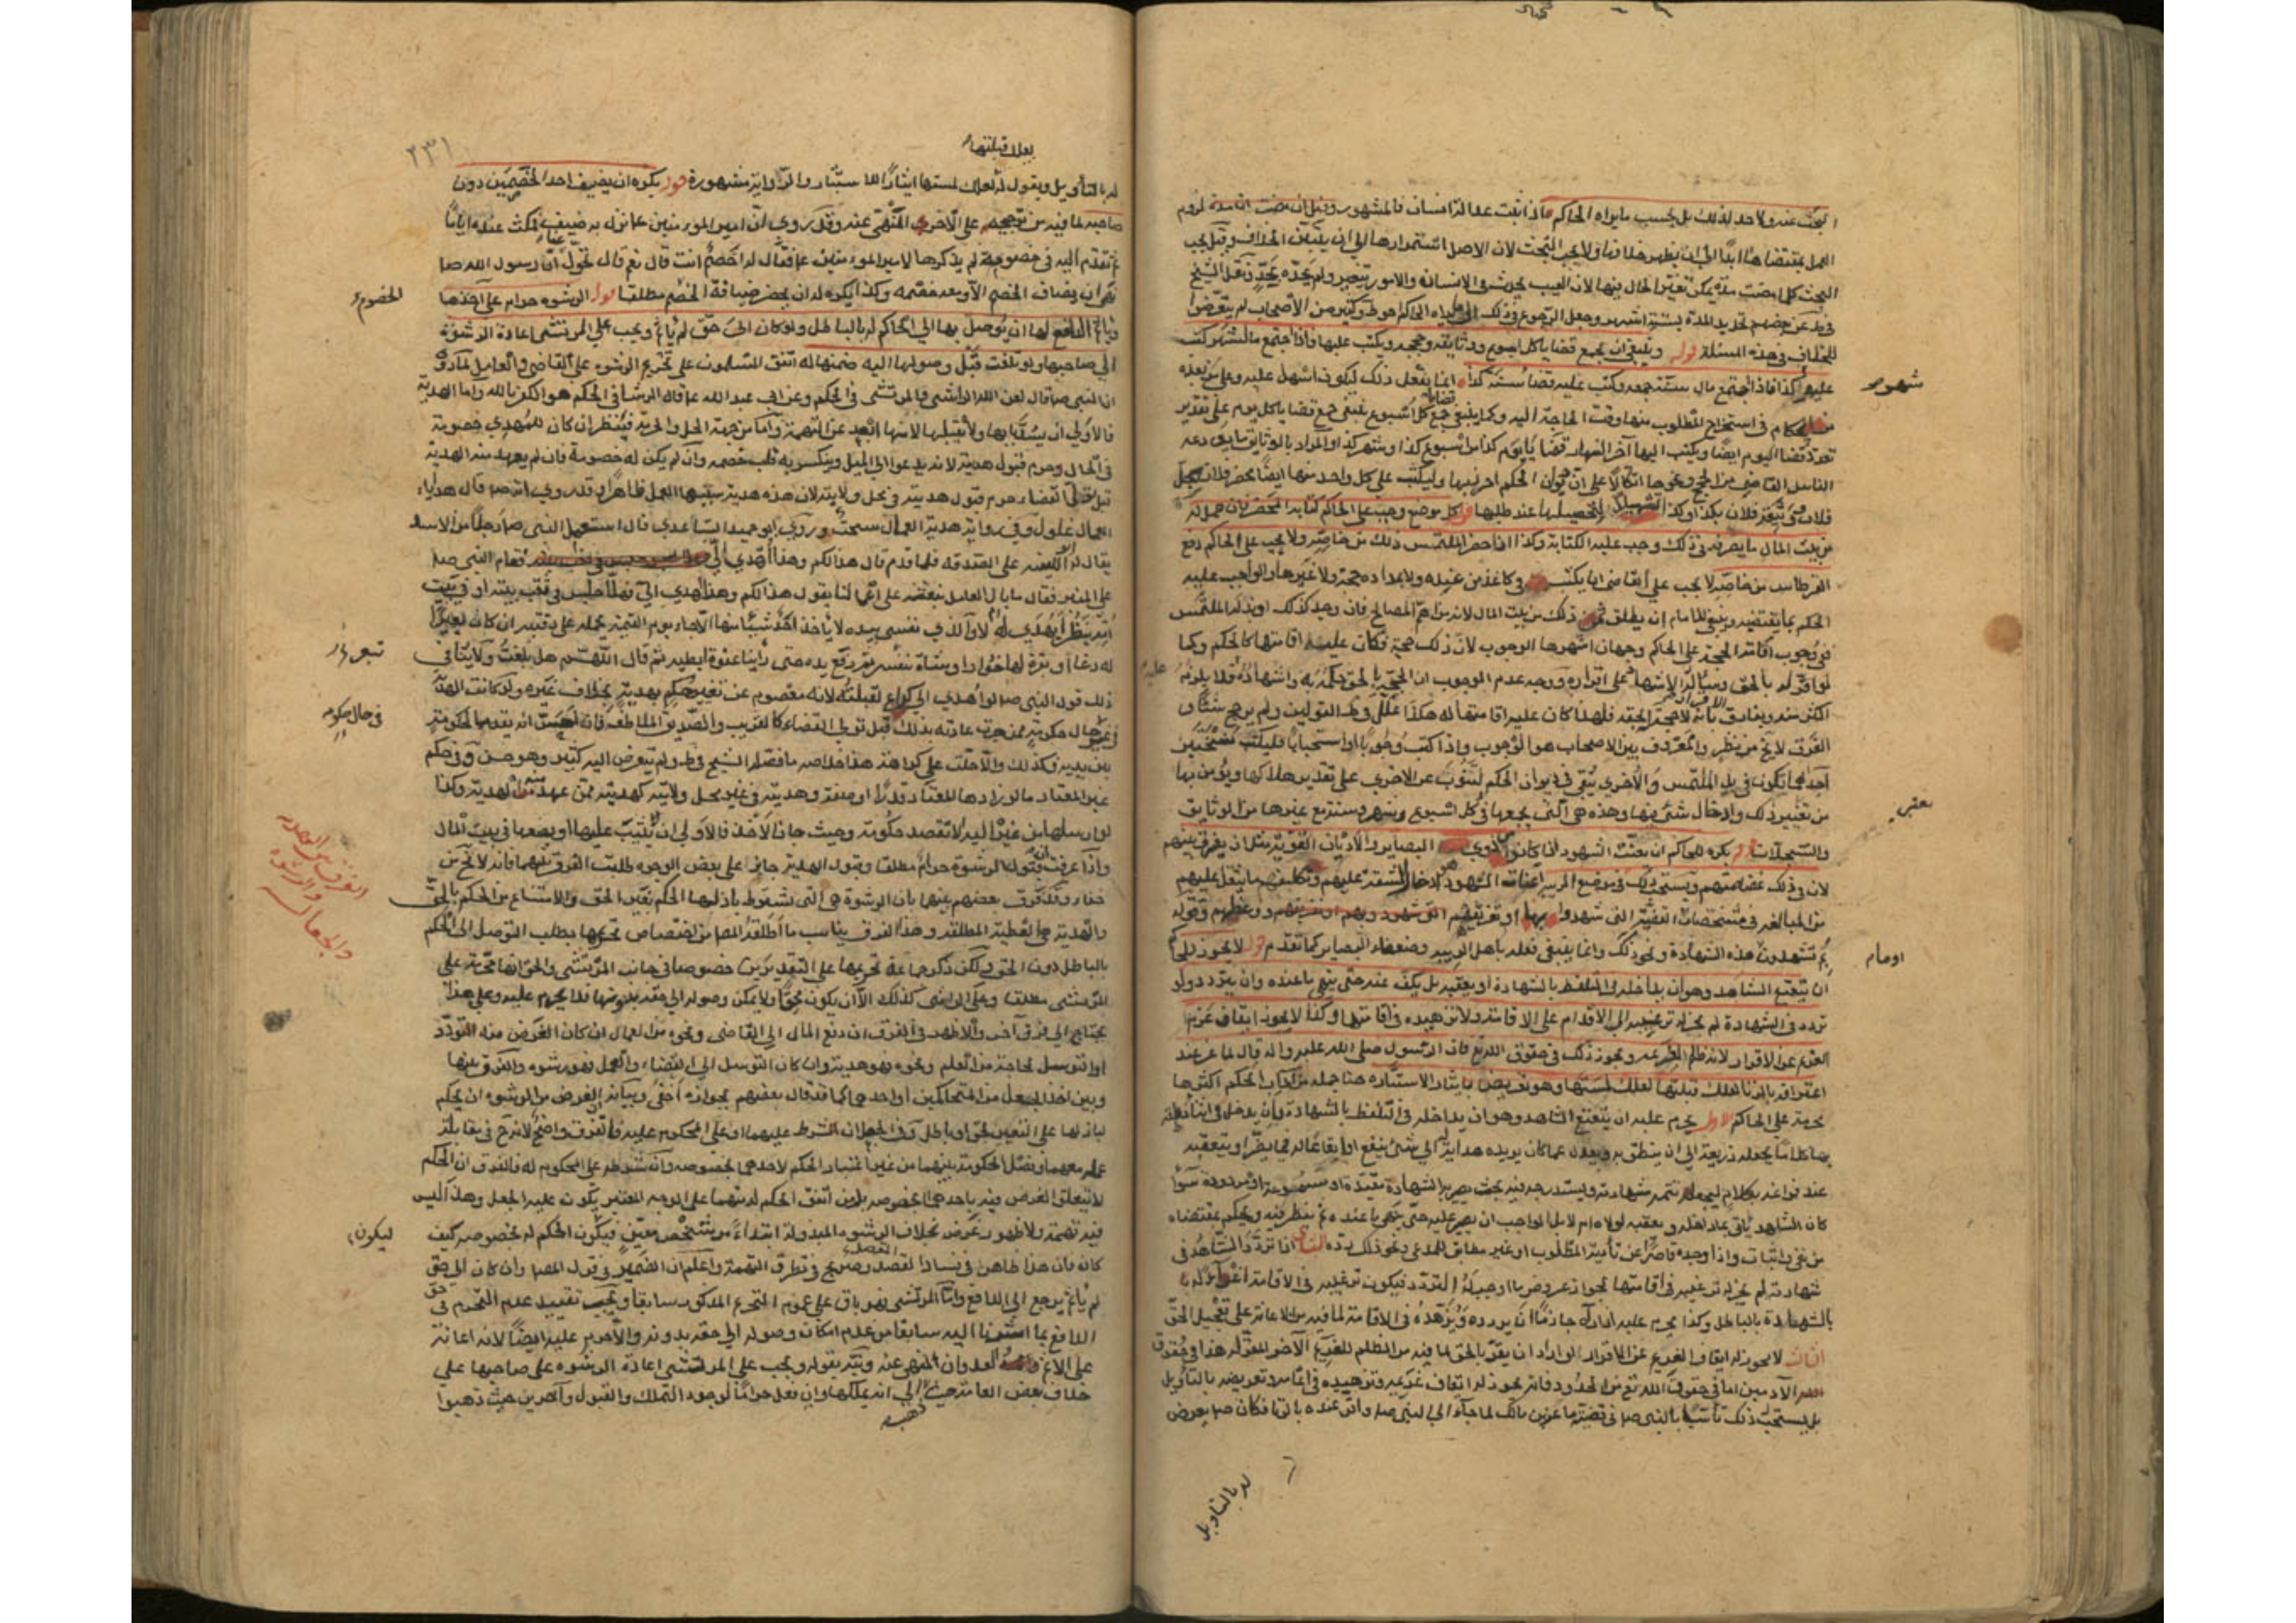 البحث عنه ولا حد لذلك بل بحسب ما يراه الحاكم اذا ثبتت عدالة انسان فالمشهور
العمل بمقتضاها ابدا الى ان يظهر خلافها ولا يجب البحث لان الاصل استمرارها الى ان يتبين الخلاف وقيل يجب
البحث كلما مضت مدة يمكن تغير الحال فيها لان العيب يحدث في الانسان والامور تتغير ولم يحده بحد ونقل الشيخ
في ط عن بعضهم تحديد المدة بستة اشهر وجعل الرجوع في ذلك الى ما يراه الحاكم احوط وكثير من الاصحاب لم يتعرضوا
للخلاف في هذه المسئلة قوله وينبغي ان يجمع قضايا كل اسبوع ووثائقه وحججه ويكتب عليها فاذا اجتمع ما لشهر كتب
عليه شهر كذا فاذا اجتمع مال سنة جمعه وكتب عليه قضاء سنة كذا انما يفعل ذلك ليكون اسهل عليه وعلى من بعده
من الحكام في استخراج المطلوب منها وقت الحاجة اليه وكما ينبغي جمع كل اسبوع ينبغي جمع قضايا كل يوم على تقدير
تعدد قضايا اليوم ايضا ويكتب اليها آخر النهار قضايا يوم كذا من اسبوع كذا وشهر كذا والمراد بالوثايق ما يودعه
الناس القاضي من الحجج ونحوها اتكالا على ان ديوان الحكم احرز لها وليكتب على كل واحد منها ايضا محضر فلان بسجل
فلان وثيقة فلان بكذا وكذا لتحصيلها عند طلبها قوله كل موضع وجب على الحاكم كتابة المحضر فان حمل له
من بيت المال ما يصرفه في ذلك وجب عليه الكتابة وكذا ان احضر الملتمس ذلك من خاصه ولا يجب على الحاكم دفع
القرطاس من خاصه لا يجب على القاضي ان يكتب في كاغذ من عنده ولا بمداده حجة ولا غيرها والواجب عليه
الحكم بما يقتضيه وينبغي للامام ان يطلق ثمن ذلك من بيت المال لانه من اهم المصالح فان وجد كذلك او بذله الملتمس
ففي وجوب اقامة الحجة على الحاكم وجهان اشهرها الوجوب لان ذلك حجة فكان عليه اقامتها كالحكم وكما
لو اقر له بالحق وسأله الاشهاد على اقراره ووجه عدم الوجوب ان الحق بالحق حكمه به واشهاده فلا يلزمه
اكثر منه
الفرق لا يخ من نظر والمعروف بين الاصحاب هو الوجوب واذا كتب وجوبا او استحبابا فليكتب نسختين
احداهما تكون في يد الملتمس والاخرى تبقى في ديوان الحكم لتنوب عن الاخرى على تقدير هلاكها ويؤمن بها
من تغيير ذلك وادخال شئ فيها وهذه هي التي يجمعها في كل اسبوع وشهر وسنة مع غيرها من الوثايق
والسجلات قوله يكره للحاكم ان يعنت الشهود اذا كانوا من ذوي البصاير والاديان القوية مثل ان يفرق بينهم
لان في ذلك غضاضة منهم ويستحب ذلك في موضع الريبة اعنات الشهود ادخال المشقة عليهم وتكليفهم ما يثقل عليهم
من المبالغة في مشخصات القضية التي شهدوا بها او تفريقهم ووعظهم وقوله
لم تشهدون هذه الشهادة ونحو ذلك وانما ينبغي فعله باهل الريبة وضعفاء البصاير كما تقدم قوله لا يجوز للحاكم
ان يتعتع الشاهد وهو ان يداخله في التلفظ بالشهادة او يتعقبه بل يكف عنه حتى ينهي ما عنده وان يتردد ولو
تردد في الشهادة لم يجز له ترغيبه الى الاقدام على الاقامة ولا تزهيده في اقامتها وكذا لا يجوز ايقاف عزم
الغريم عن الاقرار لانه ظلم لغريمه ويجوز ذلك في حقوق الله تع فان الرسول صلى الله عليه واله قال لماعز عند
اعترافه بالزنا لعلك قبلتها لعلك لمستها وهو تعريض بايثار الاستتار هنا جملة من اداب الحكم اكثرها
محرمة على الحاكم الاول يحرم عليه ان يتعتع الشاهد وهو ان يداخله في التلفظ بالشهادة بان يدخل في اثناء نطقه
بها كلاما يجعله ذريعة الى ان ينطق به ويعدل عما كان يريده هداية الى شئ ينفع او ايقاعا له فيما يضر او يتعقبه
عند فراغه بكلام ليجعله تتمة شهادته ويستدرجه فيه بحيث يصير به الشهادة مقيدة او مسموعة او مردودة سواء
كان الشاهد ياتي بما داخله وتعقبه لولاه ام لا بل الواجب ان يصبر عليه حتى ينهي ما عنده ثم ينظر فيه ويحكم بمقتضاه
من نفي واثبات واذا وجده قاصرا عن تأدية المطلوب او غير مطابق للمدعى ونحو ذلك رده الثاني اذا تردد الشاهد في
شهادته لم يجز له ترغيبه في اقامتها لجواز عروض ما اوجب له التردد فيكون ترغيبه في الاقامة اغراء له
بالشهادة بالباطل وكذا يحرم عليه اذا راه جازما ان يردده ويزهده في الاقامة لما فيه من الاعانة على تعجيل الحق
الثالث لا يجوز له ايقاف الغريم عن الاقرار لو اراد ان يقر بالحق لما فيه من الظلم للغريم الآخر المقر له هذا في حقوق
الآدميين اما في حقوق الله تع من الحدود فانه يجوز له ايقاف غريمه وتزهيده في اتمامه وتعريضه بالتأويل
بل يستحب ذلك تأسيا بالنبي ص في قضية ماعز بن مالك لما جاء الى النبي ص واقر عنده بالزنا فكان ص يعرض
له بالتاويل
شهر
عليه
نعتبر
او ما م
٢٣١
لعلك قبلتها
له بالتأويل ويقول له لعلك لمستها ايثارا للاستتار والرواية مشهورة قوله يكره ان يضيف احد الخصمين دون
صاحبه لما فيه من ترجيحه على الآخر المنهي عنه وقد روي ان امير المؤمنين ع نزل به ضيف فمكث عنده اياما
ثم تقدم اليه في خصومة لم يذكرها لامير المؤمنين ع فقال له اخصم انت قال نعم قال تحول عنا ان رسول الله ص
نهى ان يضاف الخصم الا ومعه خصمه وكذا يكره له ان يحضر ضيافة الخصم مطلقا قوله الرشوة حرام على آخذها
ويأثم الدافع لها ان توصل بها الى الحاكم له بالباطل ولو كان الى حق لم يأثم ويجب على المرتشي اعادة الرشوة
الى صاحبها ولو تلفت قبل وصولها اليه ضمنها له اتفق المسلمون على تحريم الرشوة على القاضي والعامل
ان النبي ص قال لعن الله الراشي والمرتشي في الحكم وعن ابي عبد الله ع قال الرشا في الحكم هو الكفر بالله واما الهدية
فالاولى ان يسد بابها ولا يقبلها لانها ابعد عن التهمة واما من جهة الحل والحرمة فينظر ان كان للمهدي خصومة
في الحال حرم قبول هديته لانه يدعو الى الميل وينكسر به قلب خصمه وان لم يكن له خصومة فان لم يعهد منه الهدية
قبل تولي القضاء حرم قبول هديته في محل ولايته لان هذه هدية سببها العمل ظاهرا وقد روي انه ص قال هدايا
العمال غلول وفي رواية هدية العمال سحت وروى ابو حميد الساعدي قال استعمل النبي ص رجلا من الاسد
يقال له على الصدقة فلما قدم قال هذا لكم وهذا اهدي الي فقام النبي ص
على المنبر فقال ما بال العامل نبعثه على اعمالنا يقول هذا لكم وهذا اهدي الي فهلا جلس في بيت ابيه او في بيت
امه ينظر أيهدى له ام لا والذي نفسي بيده لا يأخذ احد شيئا منها الا جاء يوم القيمة يحمله على رقبته ان كان بعيرا
له رغاء او بقرة لها خوار او شاة تيعر ثم رفع يده حتى رأينا عفرة ابطيه ثم قال اللهم هل بلغت ولا ينافي
ذلك قول النبي ص لو اهدي الي كراع لقبلته لانه معصوم عن تغيير حكم بهدية بخلاف غيره ولو كانت الهدية
في غير حال حكومة ممن جرت عادته بذلك قبل تولي القضاء كالقريب والصديق الملاطف فان احس انه يقدمها لحكومة
بين يديه فكذلك والا حلت على كراهة هذا خلاصة ما فصله الشيخ في ط ولم يتعرض اليه كثير وهو حسن وفي حكم
غير المعتاد ما لو زادها للمعتاد قدرا او صفة وهديته في غير محل ولايته كهديته ممن عهد منه الهدية وكذا
لو ارسلها من غير اليه لا لقصد حكومة وحيث جاز الاخذ فالاولى ان يثيب عليها او يضعها في بيت المال
واذا عرفت ان قبول الرشوة حرام مطلقا وقبول الهدية جايز على بعض الوجوه طلبت الفرق بينهما فانه لا يخ من
خفاء وقد فرق بعضهم بينهما بان الرشوة هي التي يشترط باذلها الحكم بغير الحق والامتناع من الحكم بالحق
والهدية هي العطية المطلقة وهذا الفرق يناسب ما اطلقه المص من اختصاص تحريمها بطلب التوصل الى الحكم
بالباطل دون الحق ولكن ذكر جماعة تحريمها على التقديرين خصوصا في جانب المرتشي والحق انها محرمة على
المرتشي مطلقا وعلى الراشي كذلك الا ان يكون محقا ولا يمكن وصوله الى حقه بدونها فلا يحرم عليه وعلى هذا
يحتاج الى فرق آخر والاظهر في الفرق ان دفع المال الى القاضي ونحوه من العمال ان كان الغرض منه التودد
او التوسل لحاجة من العلم ونحوه فهو هدية وان كان التوسل الى القضاء والعمل فهو رشوة والفرق بينها
وبين اخذ الجعل من المتحاكمين او احدهما كما قد قال بعضهم بجوازه اخفى وبيانه ان الغرض من الرشوة ان يحكم
لباذلها على التعيين بحق او باطل وفي الجعل ان الشرط عليهما او على المحكوم عليه فالفرق واضح لانه في مقابلة
عمله معهما وفصل الحكومة بينهما من غير اعتبار الحكم لاحدهما بخصوصه وان شرطه على المحكوم له فالفرق ان الحكم
لا يتعلق الغرض فيه باحدهما بخصوصه بل من اتفق الحكم له منهما على الوجه المعتبر يكون عليه الجعل وهذا ليس
فيه تهمة ولا ظهور غرض بخلاف الرشوة المبذولة ابتداء من شخص معين فيكون الحكم له بخصوصه كيف
كان فان هذا ظاهر في فساد القصد وصريح في تطرق التهمة واعلم ان الضمير في قول المص وان كان الى حق
لم يأثم يرجع الى الدافع واما المرتشي فهو باق على عموم التحريم المذكور سابقا ويجب تقييد عدم التحريم في حق
الدافع بما اشرنا اليه سابقا من عدم امكان وصوله الى حقه بدونه والا حرم عليه ايضا لانه اعانة
على الاثم والعدوان المنهي عنه ونبه بقوله ويجب على المرتشي اعادة الرشوة على صاحبها على
خلاف بعض العامة حيث ذهب الى انه يملكها وان فعل حراما لوجود التملك والقبول وآخرين حيث ذهبوا
الخصوم
تيعر
في حال حكومه
الفرق بين الهدية والرشوة والجعال
ليكون